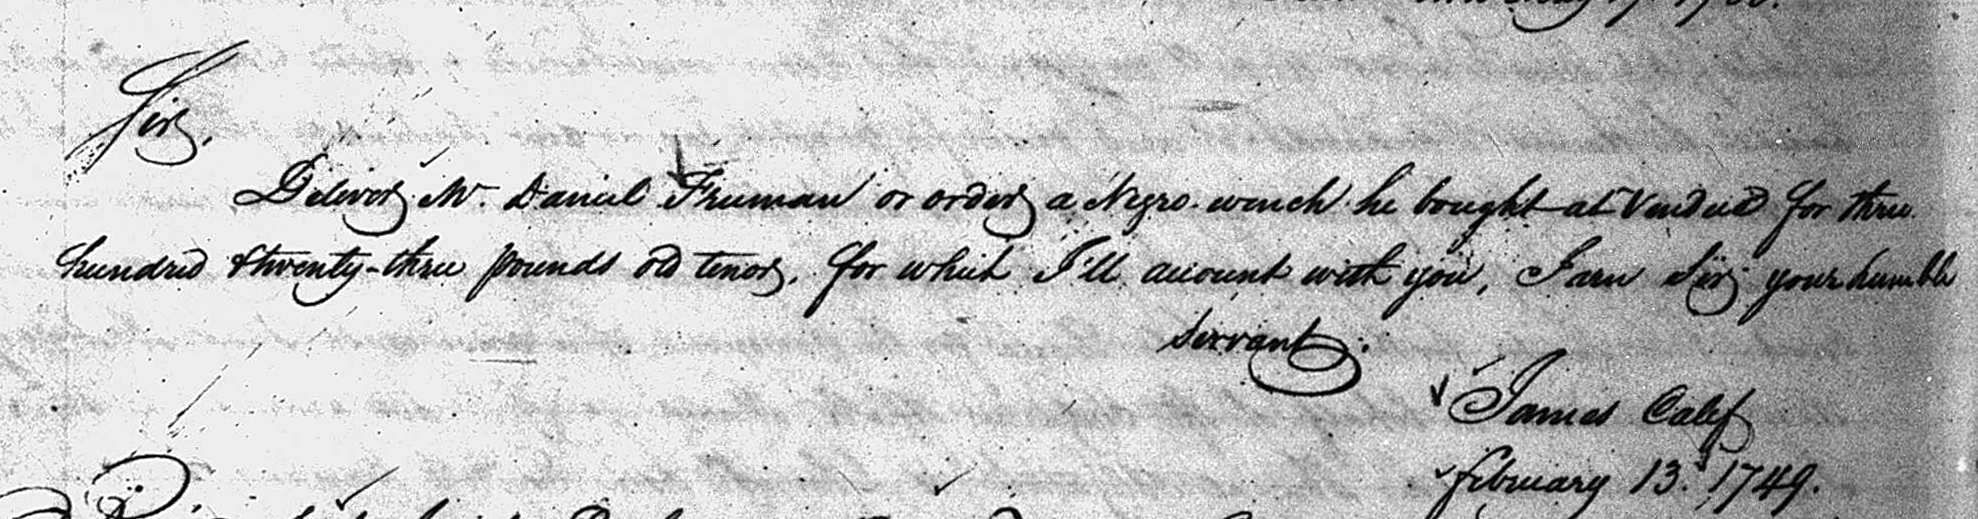 Sir,
Deliver Mr. Daniel Fruman or order a Negro wench he bought at Vendue for three
hundred & twenty-three pounds old tenor, for which I'll account with you, I am Sir your humble
servant.
James Calef
february 13.d 1749.